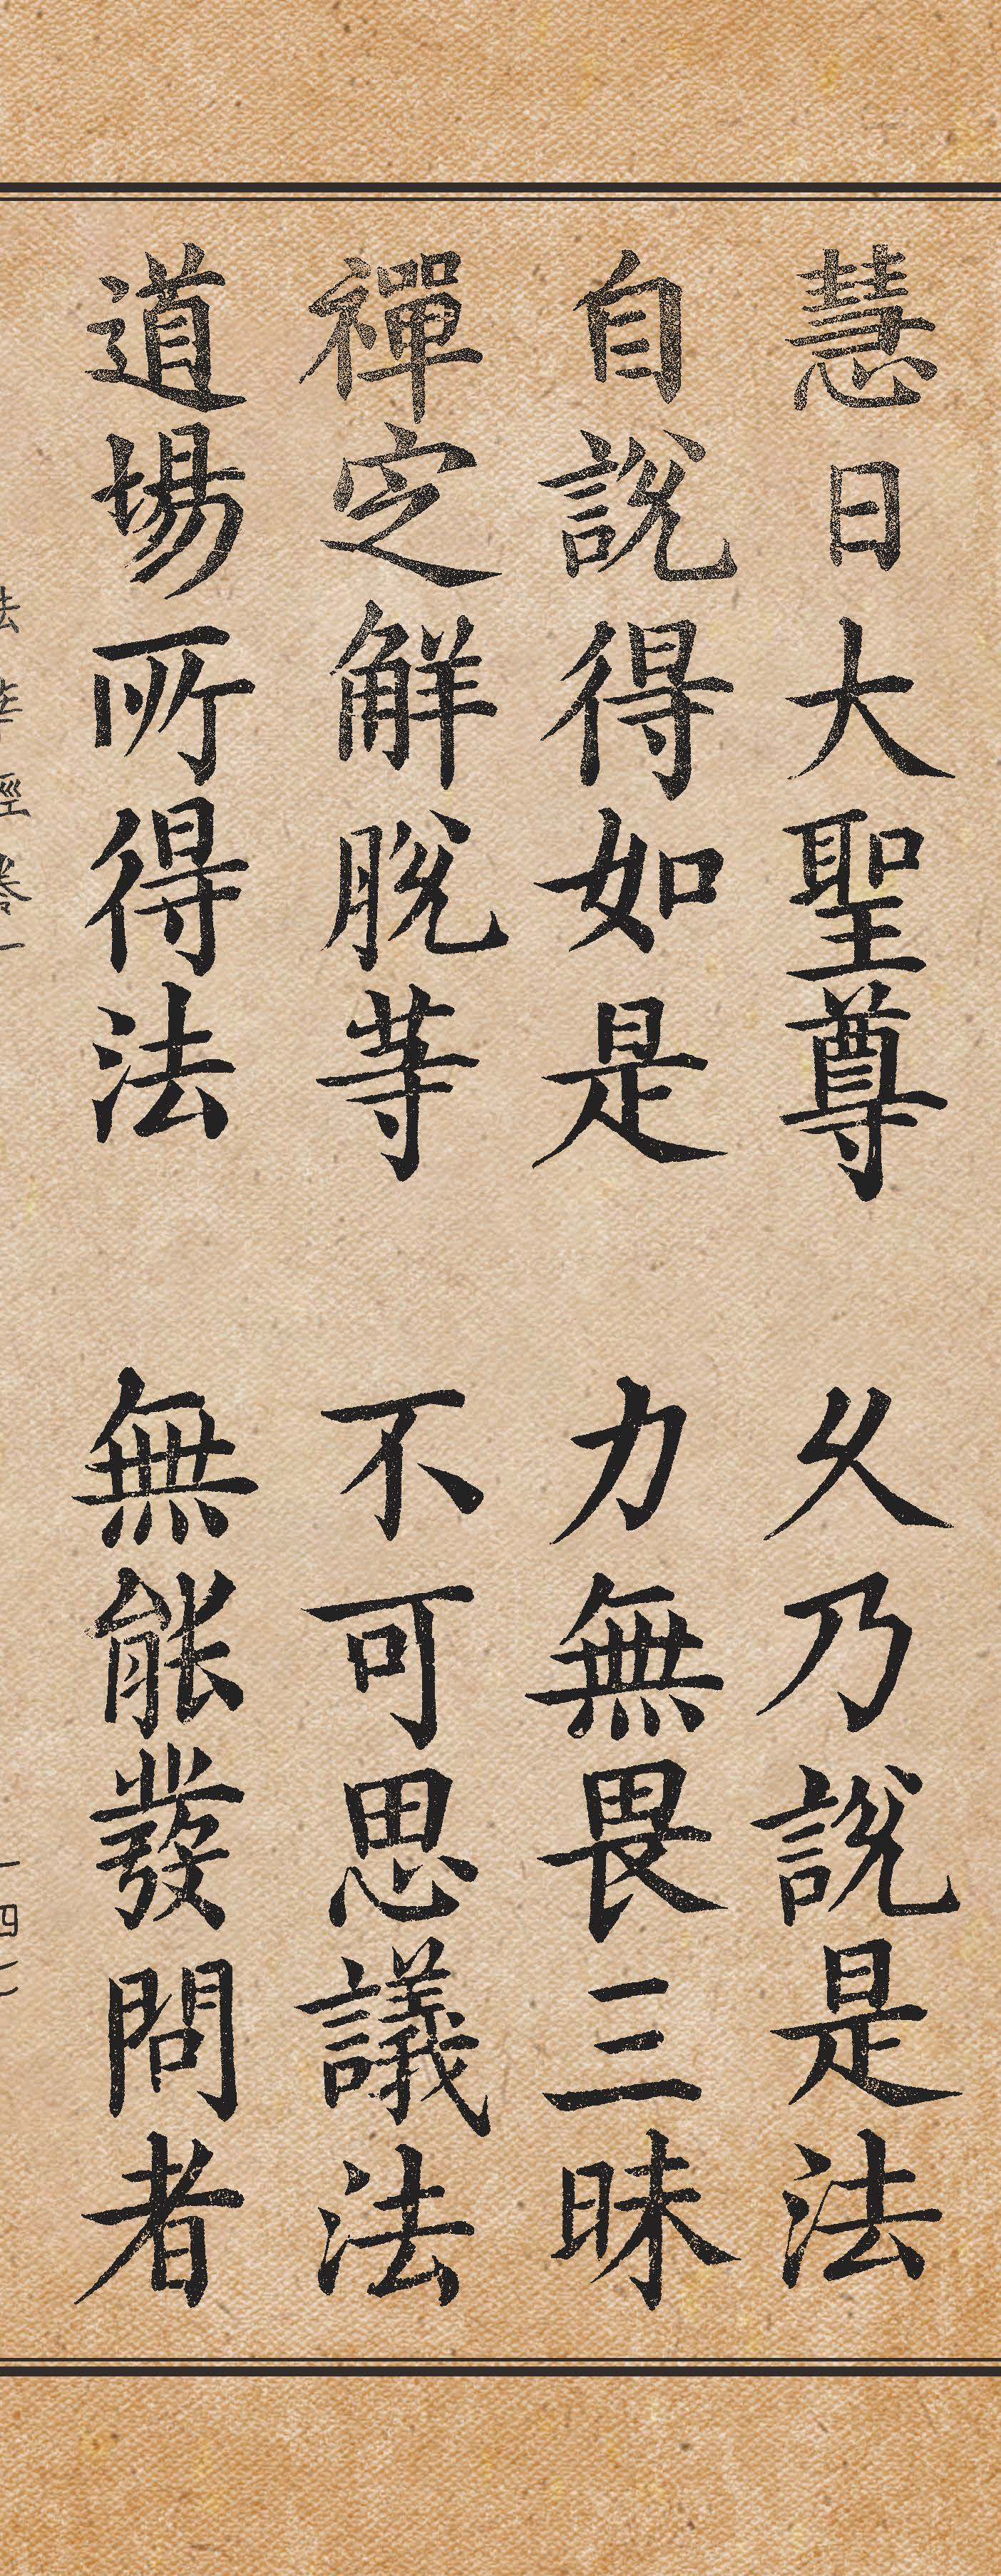 慧日大聖尊　久乃說是法
自說得如是　力無畏三昧
禪定解脫等　不可思議法
道場所得法　無能發問者
法華經卷一